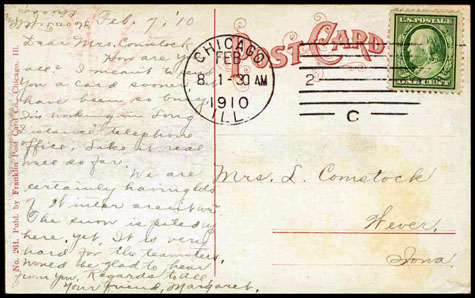 Feb. 7, '10
Dear Mrs. Comstock
How are you
all? I meant to
you a card sooner
have been so busy.
I'm working in Long
Distance telephone
office. Like it real
well so far.
We are
certainly having lots
of winter aren't we?
The snow is piled up
here, yet. It is very
hard for the teamsters.
Would be glad to hear
from you. Regards to all
Your friend, Margaret.
No. 261. Publ. by Franklin Post Card Co., Chicago, Ill.
POST CARD
CHICAGO
FEB
8 1-30 AM
1910
ILL.
2
C
U.S. POSTAGE
ONE CENT
Mrs. L. Comstock
Wever,
Iowa.